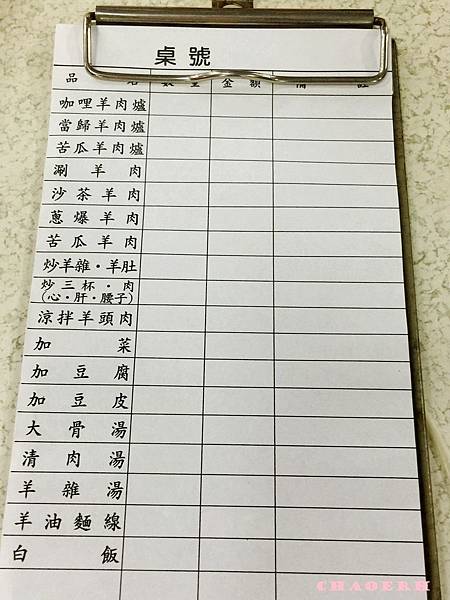 桌號
品名 數量 金額 備註
咖哩羊肉爐
當歸羊肉爐
苦瓜羊肉爐
涮羊肉
沙茶羊肉
蔥爆羊肉
苦瓜羊肉
炒羊雜·羊肚
炒三杯·肉
(心·肝·腰子)
涼拌羊頭肉
加菜
加豆腐
加豆皮
大骨湯
清肉湯
羊雜湯
羊油麵線
白飯
CHAOERH